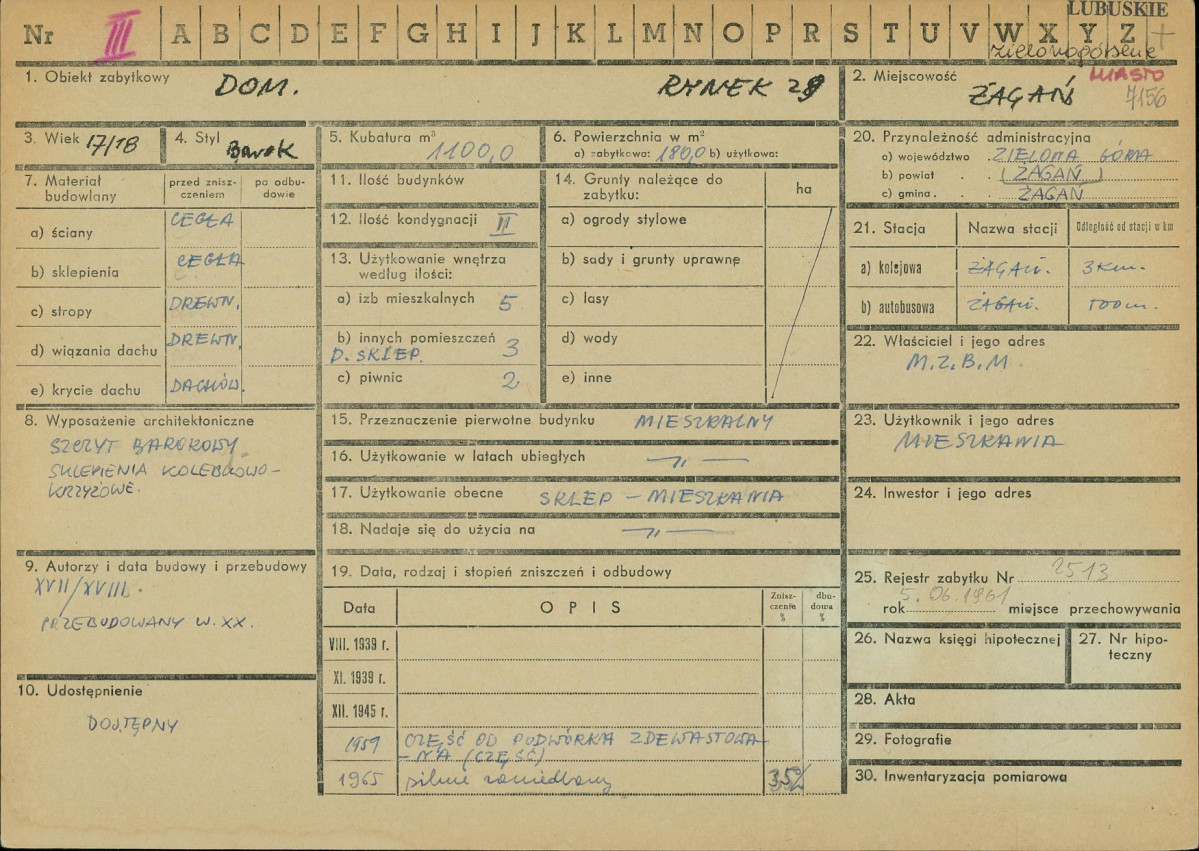 LUBUSKIE
Nr III A B C D E F G H I J K L M N O P R S T U V W X Y Z
zielonogórskie
1. Obiekt zabytkowy DOM. RYNEK
2. Miejscowość ŻAGAŃ
MIASTO
7156
3. Wiek 17/18
4. Styl Barok
5. Kubatura m³ 1100,0
6. Powierzchnia w m²
a) zabytkowa: 180,0 b) użytkowa:
7. Materiał budowlany
przed zniszczeniem
po odbudowie
a) ściany CEGŁA
b) sklepienia CEGŁA
c) stropy DREWN.
d) wiązania dachu DREWN.
e) krycie dachu DACHÓW.
8. Wyposażenie architektoniczne
SZCZYT BAROKOWY
SKLEPIENIA KOLEBKOWO-
KRZYŻOWE.
9. Autorzy i data budowy i przebudowy
XVII/XVIII.
PRZEBUDOWANY W. XX.
10. Udostępnienie
DOSTĘPNY
11. Ilość budynków
12. Ilość kondygnacji III
13. Użytkowanie wnętrza
według ilości:
a) izb mieszkalnych 5
b) innych pomieszczeń 3
D. SKLEP.
c) piwnic 2
14. Grunty należące do
zabytku:
ha
a) ogrody stylowe
b) sady i grunty uprawnę
c) lasy
d) wody
e) inne
15. Przeznaczenie pierwotne budynku MIESZKALNY
16. Użytkowanie w latach ubiegłych —"—
17. Użytkowanie obecne SKLEP – MIESZKANIA
18. Nadaje się do użycia na —"—
19. Data, rodzaj i stopień zniszczeń i odbudowy
Data
OPIS
Zniszczenie %
dbudowa %
VIII. 1939 r.
XI. 1939 r.
XII. 1945 r.
1959 CZĘŚĆ OD PODWÓRKA ZDEWASTOWA-
-NA (CZĘŚĆ)
1965 silnie zaniedbany 35%
20. Przynależność administracyjna
a) województwo ZIELONA GÓRA
b) powiat (ŻAGAŃ)
c) gmina ŻAGAŃ
21. Stacja
Nazwa stacji
Odległość od stacji w km
a) kolejowa ŻAGAŃ. 3 km.
b) autobusowa ŻAGAŃ. 100 m.
22. Właściciel i jego adres
M.Z.B.M.
23. Użytkownik i jego adres
MIESZKANIA
24. Inwestor i jego adres
25. Rejestr zabytku Nr 2513
rok 5.06.1961 miejsce przechowywania
26. Nazwa księgi hipotecznej
27. Nr hipo-
teczny
28. Akta
29. Fotografie
30. Inwentaryzacja pomiarowa